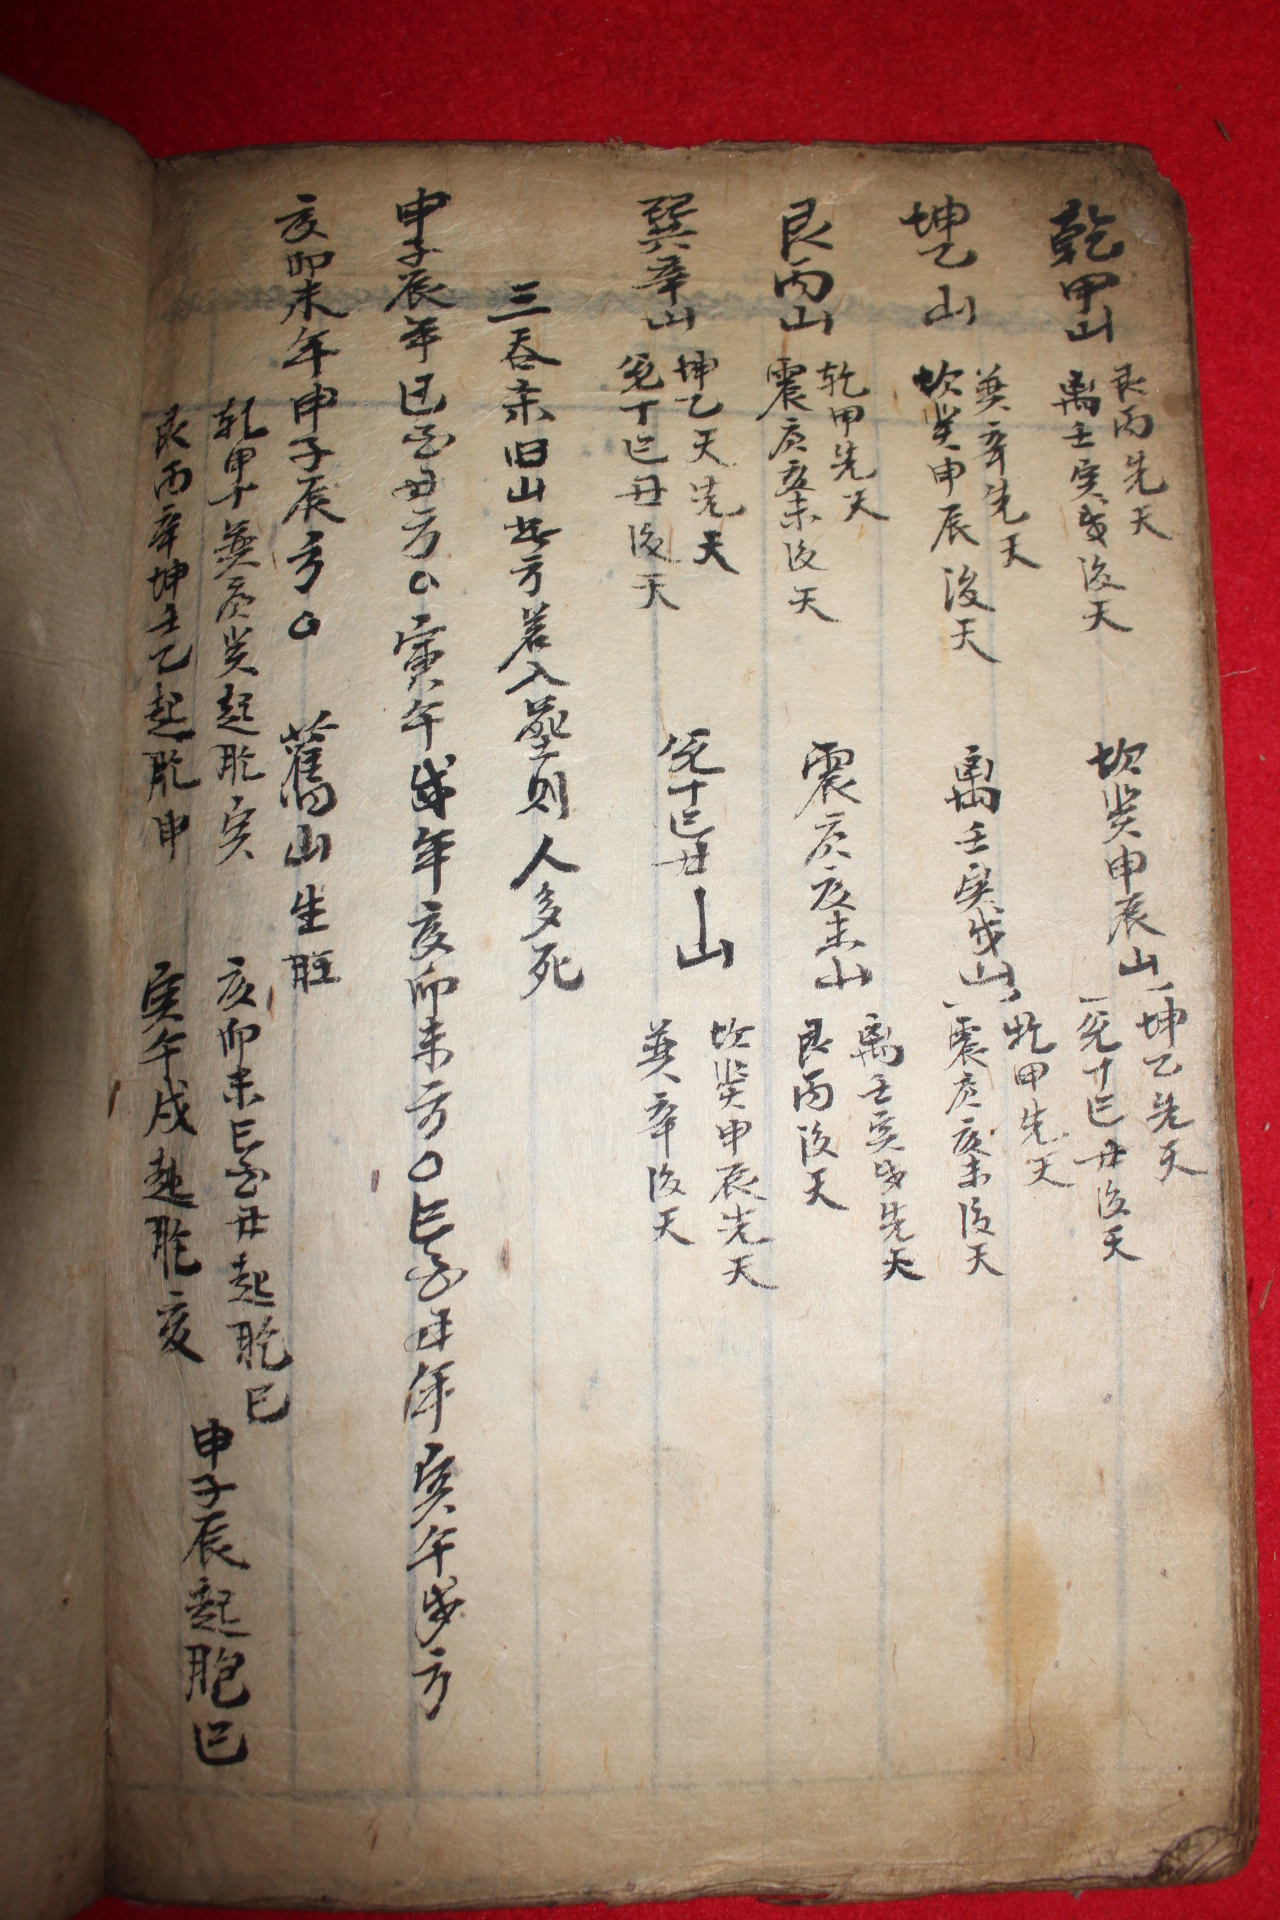 乾甲山 艮丙先天
离壬寅戌後天
坎癸申辰山 坤乙先天
兌丁巳丑後天
坤乙山 巽辛先天
坎癸申辰後天
离壬寅戌山 乾甲先天
震庚亥未後天
艮丙山 乾甲先天
震庚亥未後天
震庚亥未山 离壬寅戌先天
艮丙後天
巽辛山 坤乙天先天
兌丁巳丑後天
兌丁巳丑山 坎癸申辰先天
巽辛後天
三吞亦旧山此方若入葬則人多死
申子辰年巳酉丑方〇寅午戌年亥卯未方〇巳酉丑年寅午戌方
亥卯未年申子辰方〇 舊山生旺
乾甲丁巽庚癸起胞寅 亥卯未巳酉丑起胞巳
艮丙辛坤壬乙起胞申 寅午戌起胞亥 申子辰起胞巳